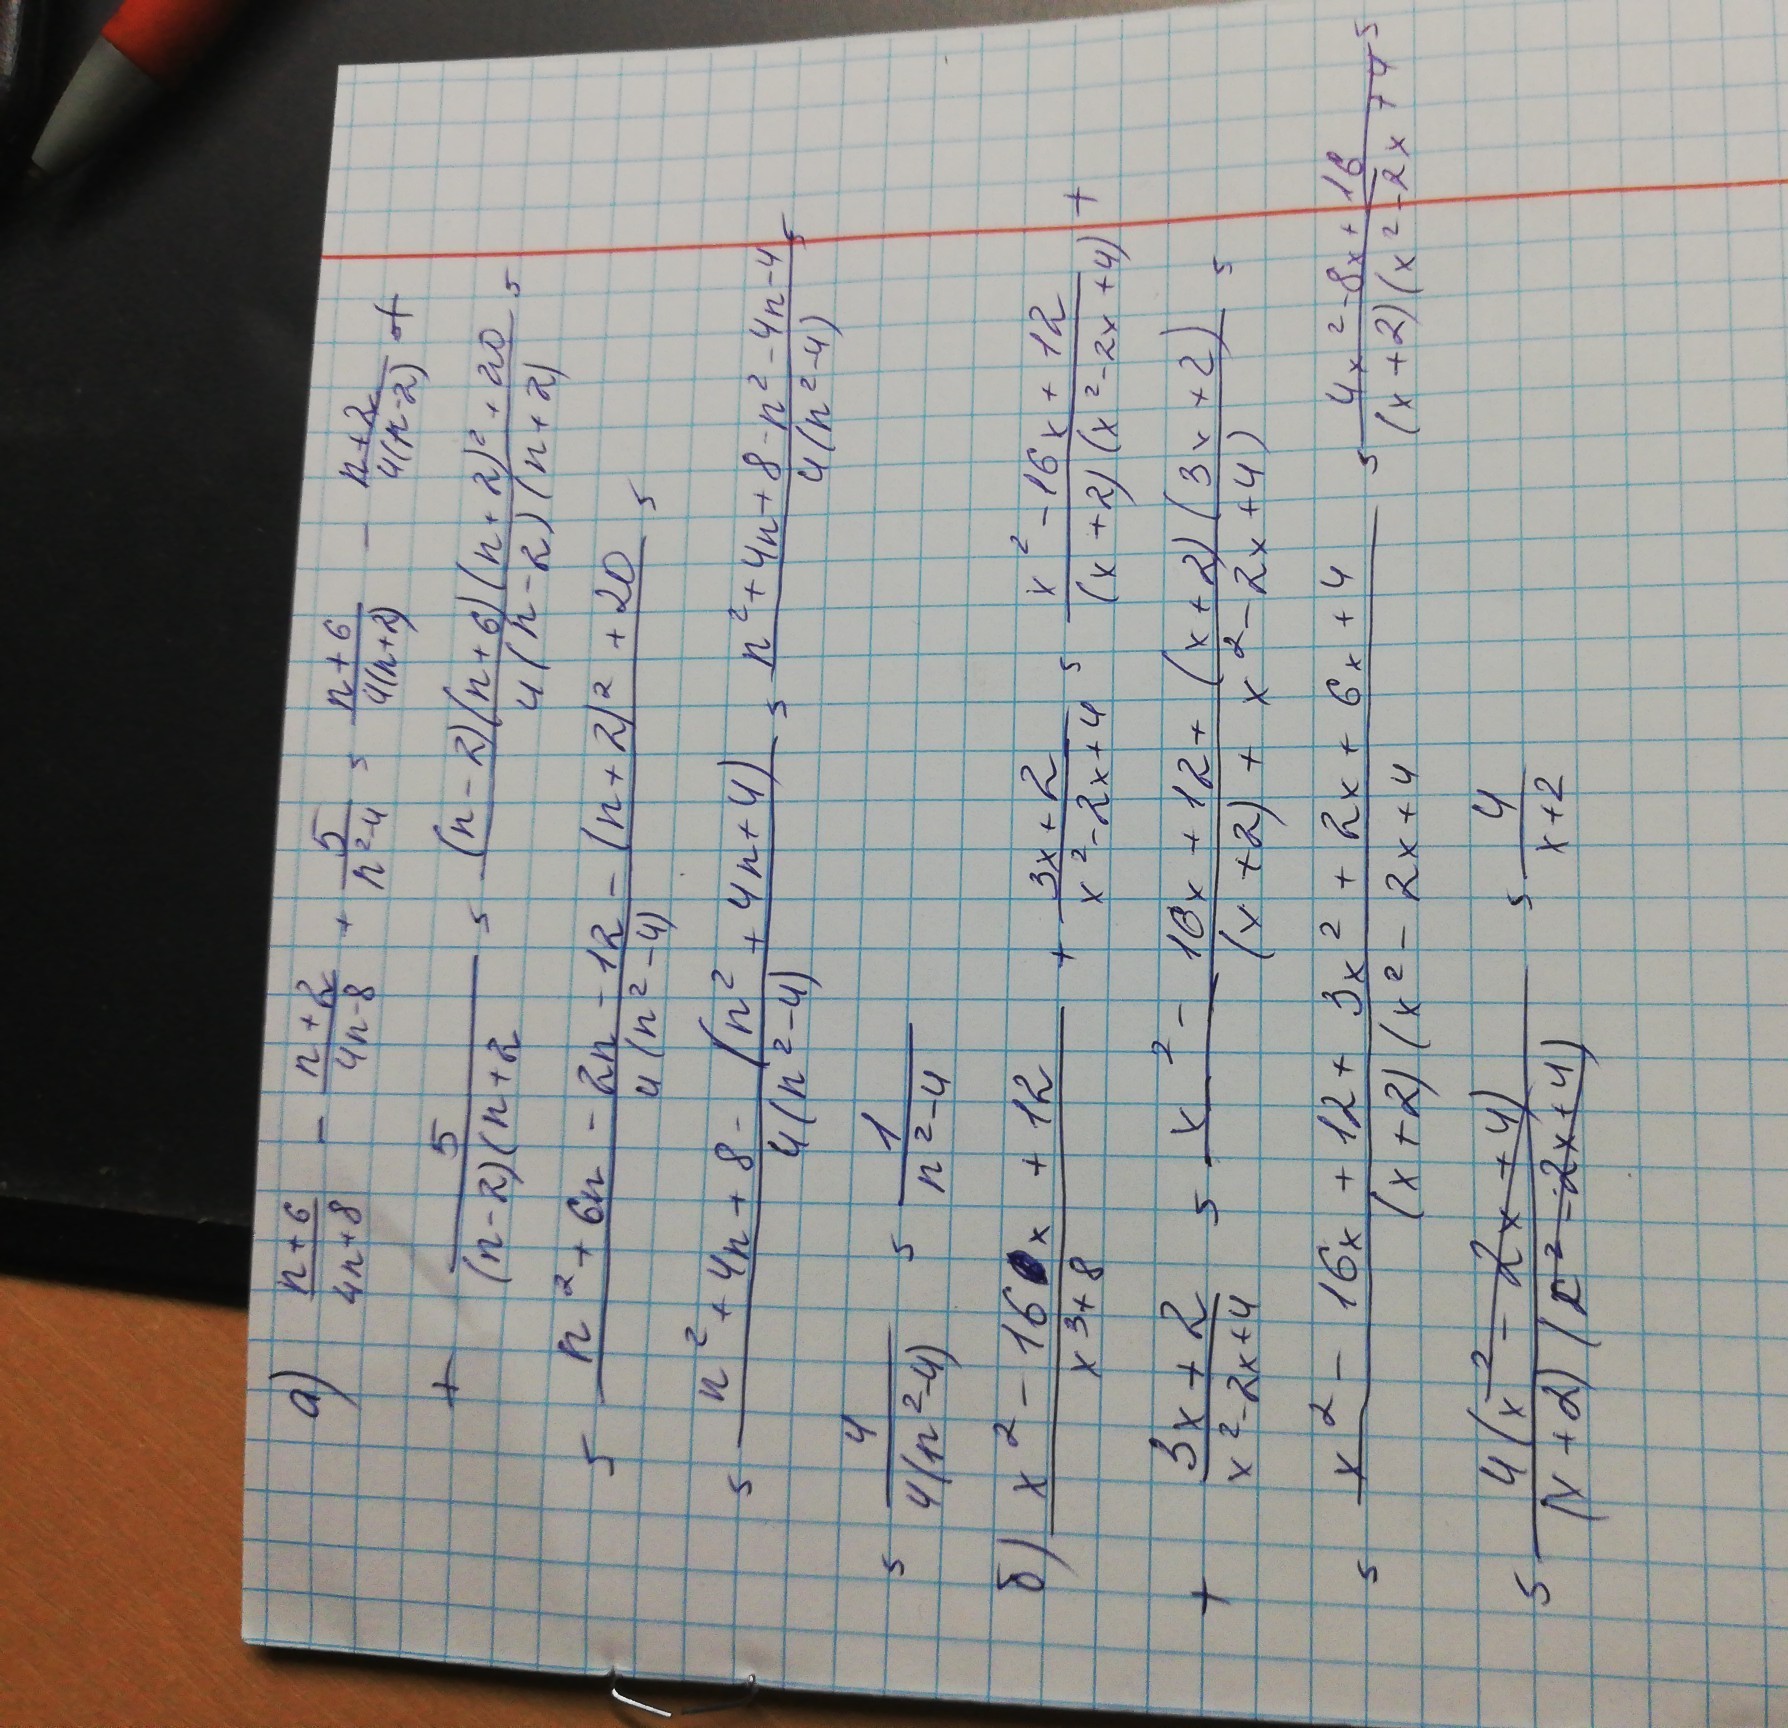 а) (n+6)/(4n+8) - (n+2)/(4n-8) + 5/(n²-4) = (n+6)/(4(n+2)) - (n+2)/(4(n-2)) +
+ 5/((n-2)(n+2) = ((n-2)(n+6)(n+2)²+20)/(4(n-2)(n+2)) =
= (n²+6n-2n-12-(n+2)²+20)/(4(n²-4)) =
= (n²+4n+8-(n²+4n+4))/(4(n²-4)) = (n²+4n+8-n²-4n-4)/(4(n²-4)) =
= 4/(4(n²-4)) = 1/(n²-4)
б) (x²-16x+12)/(x³+8) + (3x+2)/(x²-2x+4) = (x²-16x+12)/((x+2)(x²-2x+4)) +
+ (3x+2)/(x²-2x+4) = (x²-16x+12+(x+2)(3x+2))/((x+2)+x²-2x+4) =
= (x²-16x+12+3x²+2x+6x+4)/((x+2)(x²-2x+4) = (4x²-8x+16)/((x+2)(x²-2x+4) =
= (4(x²-2x+4))/((x+2)(x²-2x+4)) = 4/(x+2)